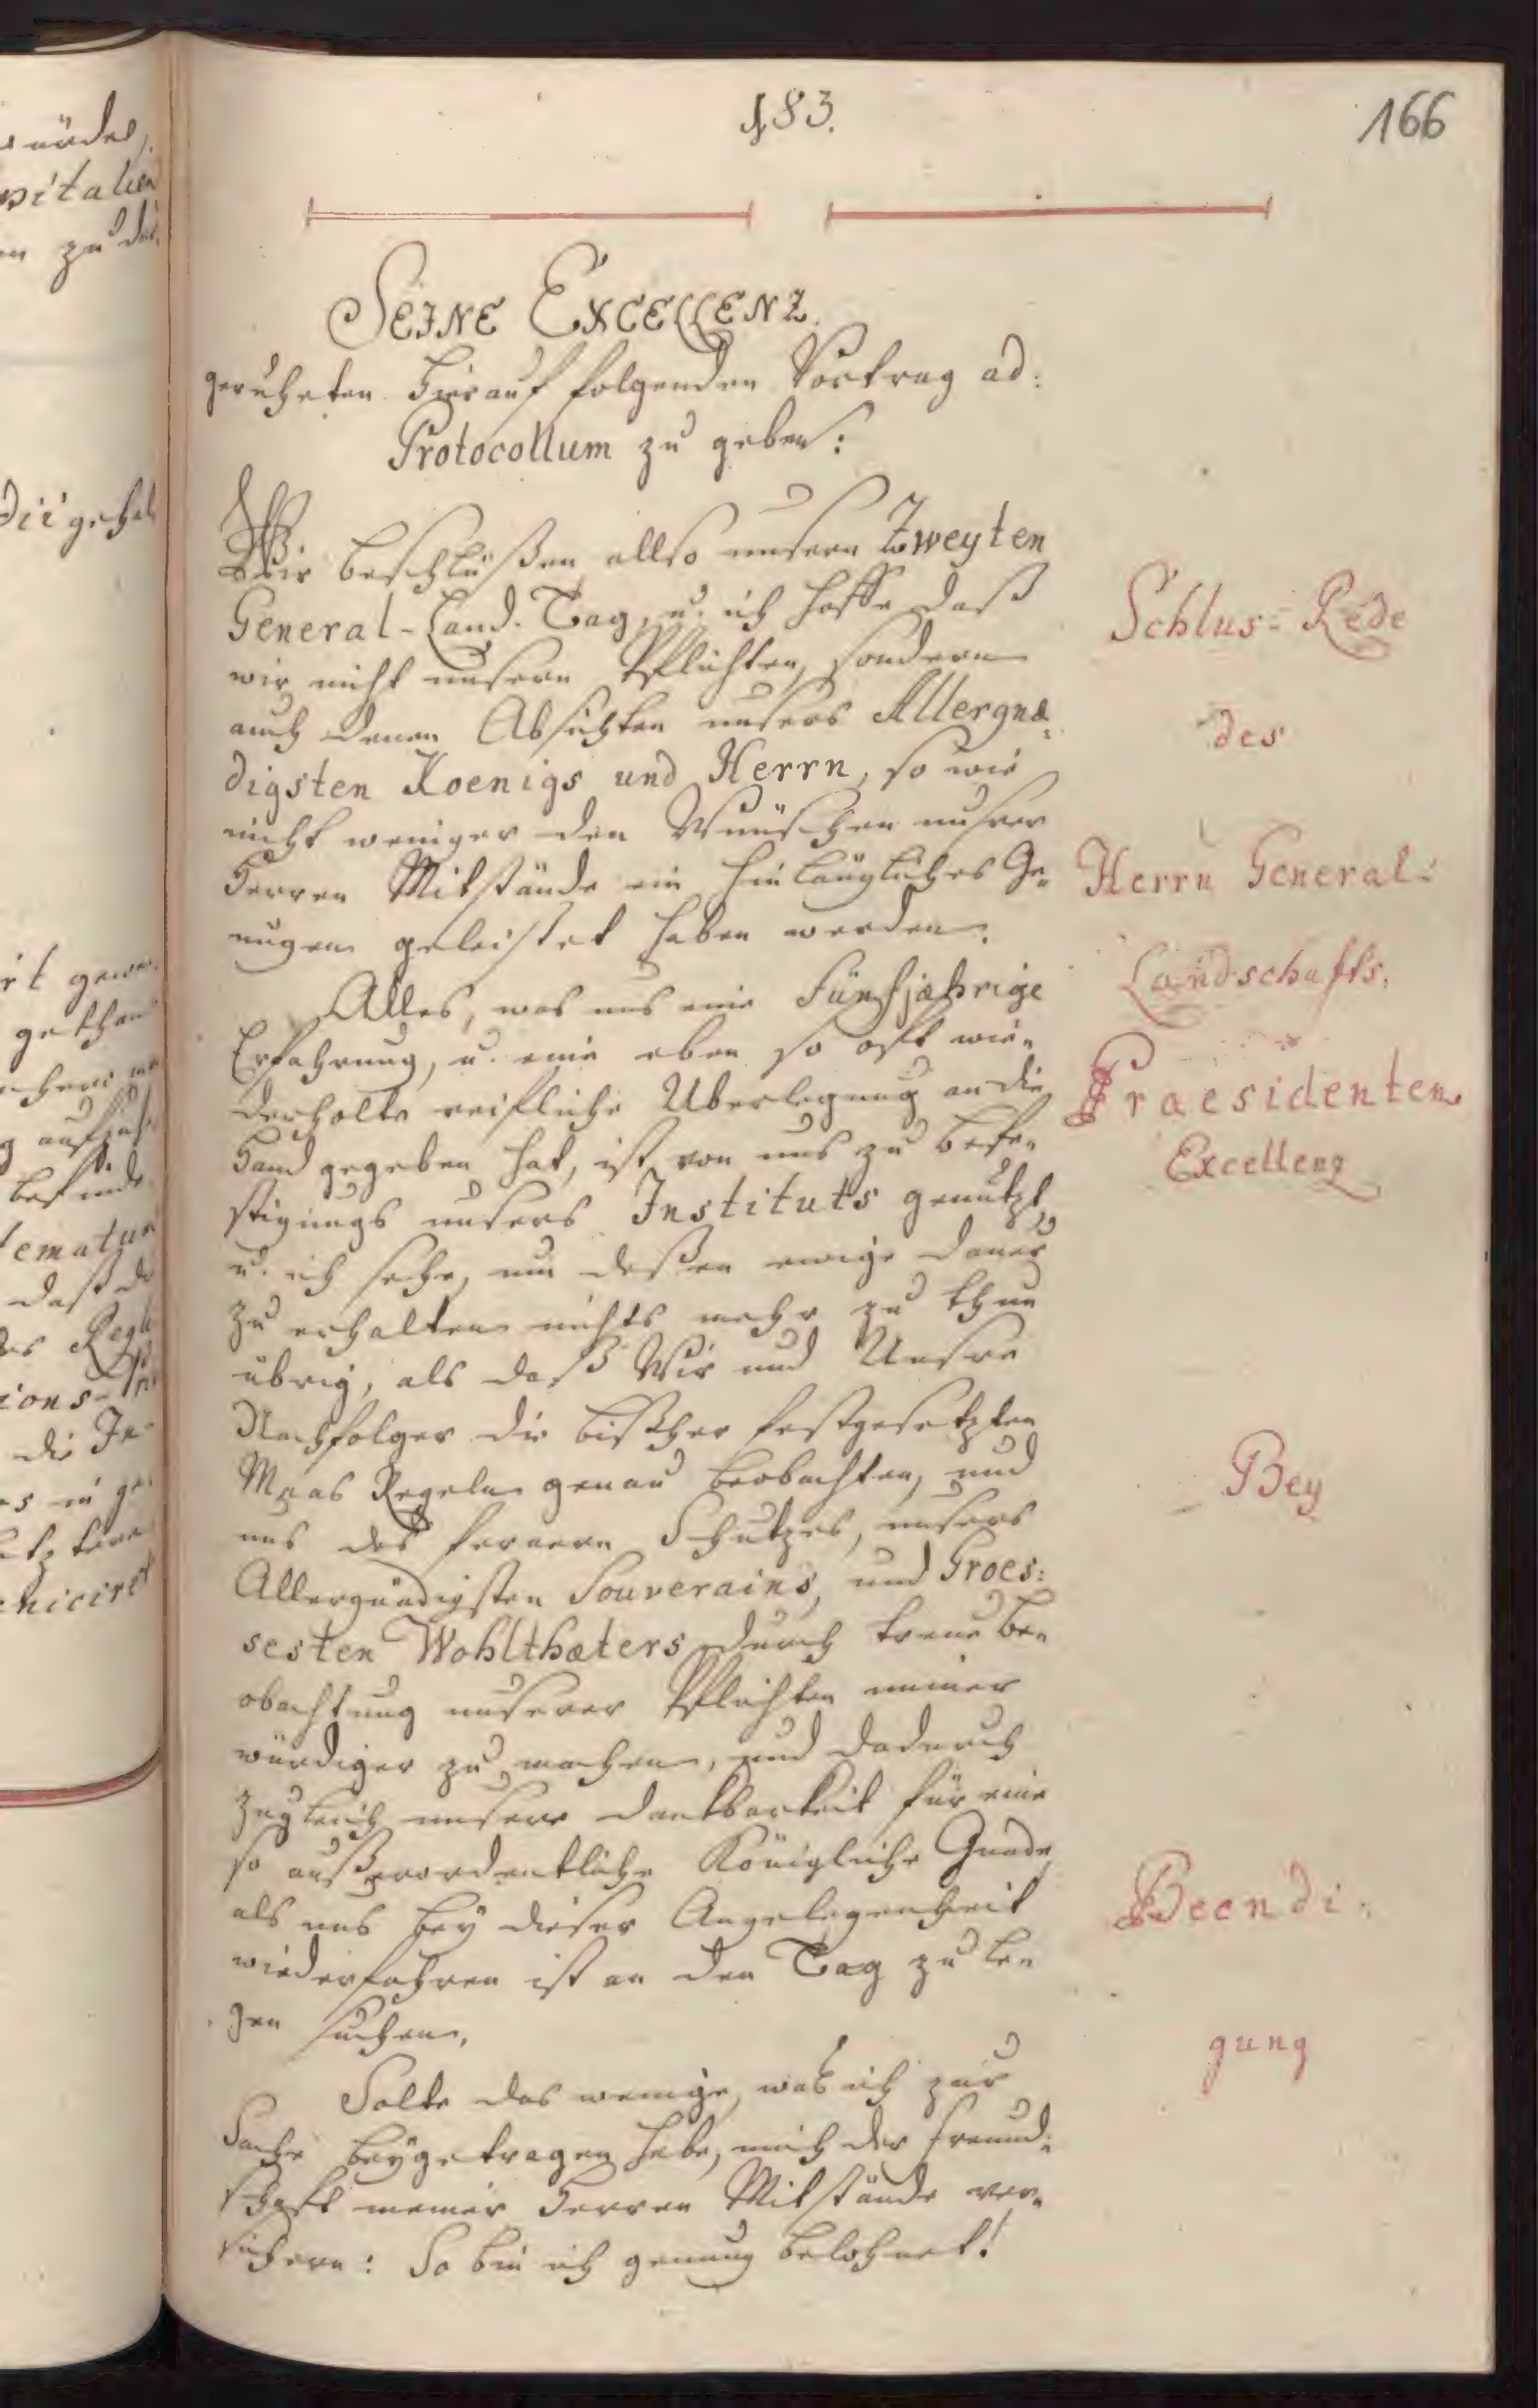 183.
166
SEINE EXCELLENZ.
geruheten hierauf folgenden Vortrag ad:
Protocollum zu geben:
Wir beschlüßen allso unsern Zweyten
General-Land-Tag, u. ich hoffe daß
wir nicht unsern Pflichten, sondern
auch denen Absichten unsers Allergnæ:
digsten Koenigs und Herrn, so wie
nicht weniger den Wünschen unsrer
Herren Mitstände ein hinlängliches Ge=
nugen geleistet haben werden.
Alles, was uns eine Fünfjæhrige
Erfahrung, u. eine eben so oft wie=
derholte reifliche Uberlegung an die
Hand gegeben hat, ist von uns zu Befe=
stigungs unsers Instituts genutzt,
u. ich sehe, um deßen ewige Dauer
zu erhalten nichts mehr zu thun
übrig, als daß Wir und Unsre
Nachfolger die bißher festgesetzten
Maas Regeln genau beobachten, und
uns des fernern Schutzes, unsers
Allergnädigsten Souverains, und Groes:
sesten Wohlthæters durch treue Be=
obachtung unserer Pflichten immer
würdiger zu machen, und dadurch
zugleich unsere Dankbarkeit für eine
so außerordentliche Königliche Gnade,
als uns bey dieser Angelegenheit
wiederfahren ist an den Tag zu le=
gen suchen.
Solte das wenige, was ich zur
Sache beygetragen habe, mich der Freund:
schaft meiner Herren Mitstände ver=
sichern: So bin ich genung belohnet!
Schlus=Rede
des
Herrn General=
Landschafts.
Praesidenten
Excellenz
Bey
Beendi:
gung